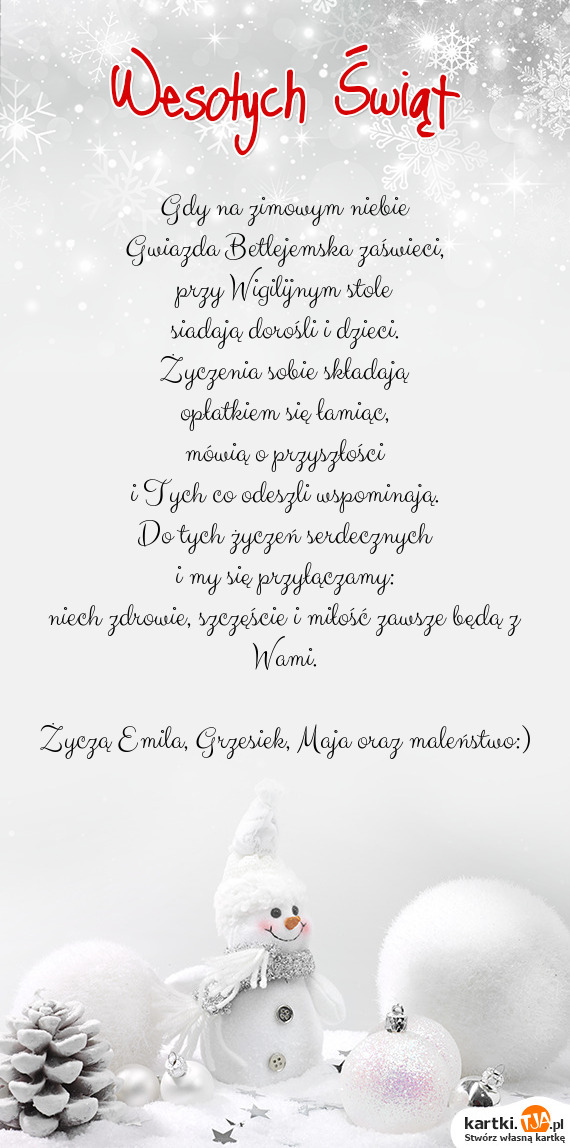 Wesołych Świąt
Gdy na zimowym niebie
Gwiazda Betlejemska zaświeci,
przy Wigilijnym stole
siadają dorośli i dzieci.
Życzenia sobie składają
opłatkiem się łamiąc,
mówią o przyszłości
i Tych co odeszli wspominają.
Do tych życzeń serdecznych
i my się przyłączamy:
niech zdrowie, szczęście i miłość zawsze będą z
Wami.
Życzą Emila, Grzesiek, Maja oraz maleństwo:)
kartki.TJA.pl
Stwórz własną kartkę